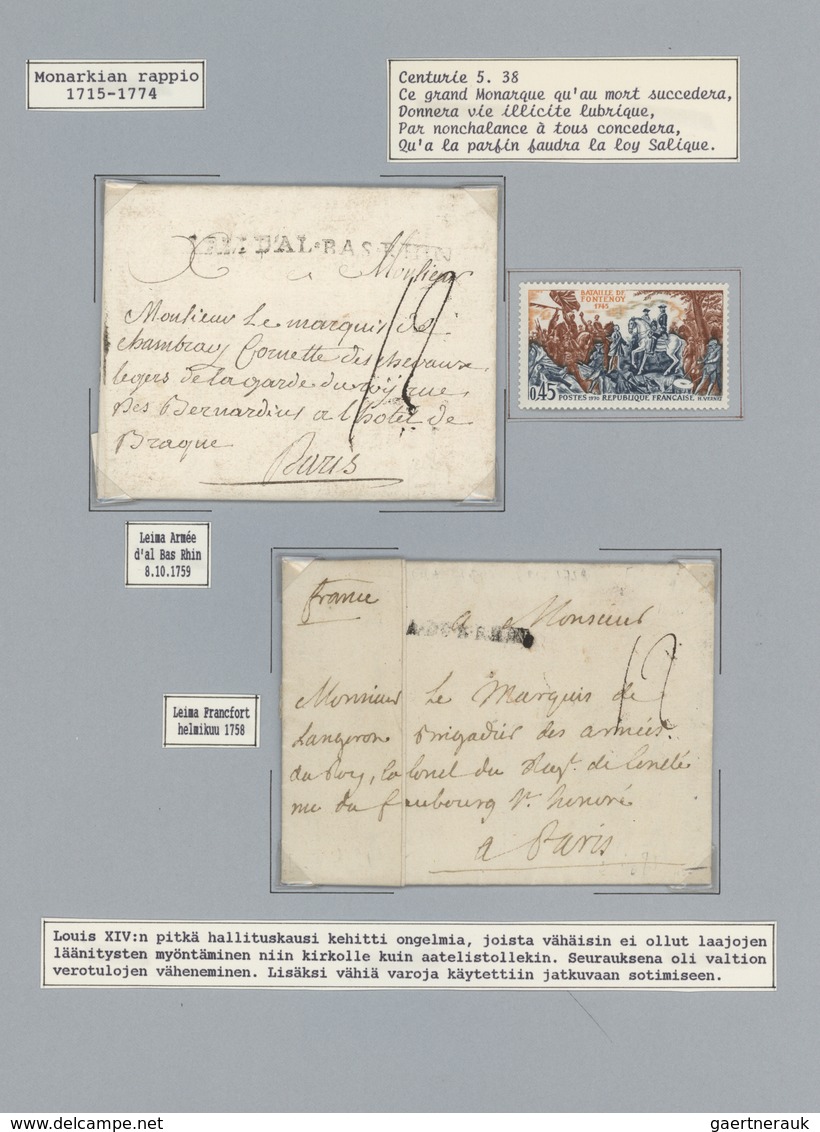 Monarkian rappio
1715-1774
Centurie 5. 38
Ce grand Monarque qu'au mort succedera,
Donnera vie illicite lubrique,
Par nonchalance à tous concedera,
Qu'a la parfin faudra la loy Salique.
D'AL-BAS-RHIN
a Monsieur
Monsieur Le marquis de
chambray Cornette des chevaux
legers de la garde du roy rue
des Bernardins a l'hotel de
Braque
Paris
12
BATAILLE DE
FONTENOY
1745
0,45
POSTES 1970 REPUBLIQUE FRANÇAISE H. VERNET
Leima Armée
d'al Bas Rhin
8.10.1759
france
a Monsieur
12
Monsieur Le Marquis de
Langeron Brigadier des armées
du Roy, Colonel du Regt. de
rue du faubourg St. honoré
a Paris
Leima Francfort
helmikuu 1758
Louis XIV:n pitkä hallituskausi kehitti ongelmia, joista vähäisin ei ollut laajojen
läänitysten myöntäminen niin kirkolle kuin aatelistollekin. Seurauksena oli valtion
verotulojen väheneminen. Lisäksi vähiä varoja käytettiin jatkuvaan sotimiseen.
delcampe.net
gaertnerauk